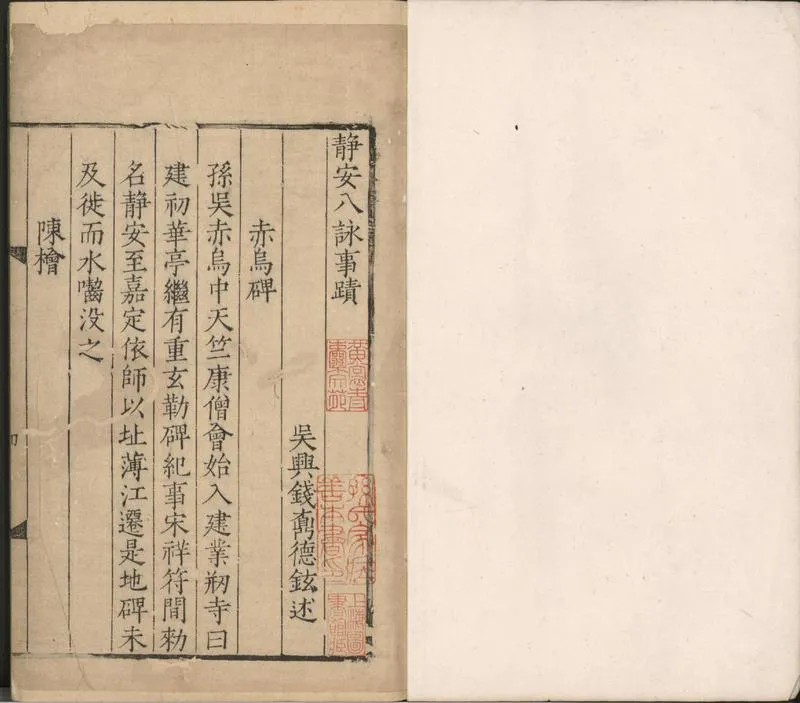 静安八詠事蹟
吳興錢鼒德鉉述
赤烏碑
孫吳赤烏中天竺康僧會始入建業剏寺曰
建初華亭繼有重玄勒碑紀事宋祥符間勑
名靜安至嘉定依師以址薄江遷是地碑未
及徙而水囓没之
陳檜